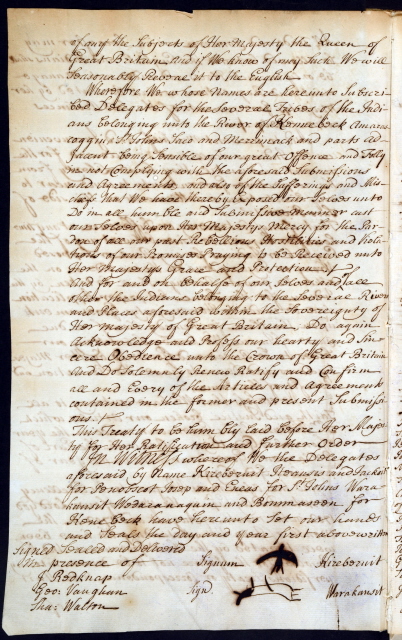 of any the Subjects of Her Majesty the Queen of
Great Brittain And if We know of any Such We will
Seasonably Reveale it to the English
Wherefore We whose Names are hereunto Subscri-
bed Delegates for the Several Tribes of the Indi-
ans belonging unto the River of Kennebeck Amaras-
coggin St Johns Saco and Merrimack and parts ad-
jacent being Sensible of our great Offence and Folly
in not Complying with the aforesaid Submissions
and Agreements and also of the Sufferings and Mis-
chiefs that We have thereby Exposed our Selves unto
Do in all humble and Submissive manner cast
our Selves upon Her Majestys Mercy for the Par-
don of all our past Rebellions Hostilities and Viola-
tions of our Promises Praying to be Received unto
Her Majestys Grace and Protection
And for and on behalfe of our Selves and all
other the Indians belonging to the Several Rivers
and Places aforesaid within the Sovereignty of
Her Majesty of Great Britain Do again
Acknowledge and Profess our hearty and Sin-
cere Obedience unto the Crown of Great Britain
And Do Solemnly Renew Ratify and Confirm
all and Every of the Articles and Agreements
contained in the former and present Submissi-
ons
This Treaty to be humbly laid before Her Majes-
ty for Her Ratification and Further Order
In Witness whereof We the Delegates
aforesaid by Name Kirebenuit Iteansis and Jackoit
for Penobscot Joseph and Eneas for St Johns Wara-
kansit Wedaranaquin and Bommaseen for
Kenebeck have hereunto Set our hands
and Seals the day and year first above written
Signed Sealed and Delivered
In presence of Signum Kirebenuit
J Redknap
Geo: Vaughan Sign Warakansit
Tha: Walton